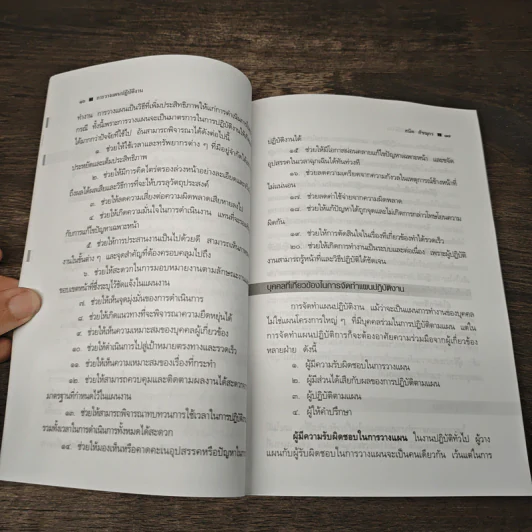 ๑๖ ■ การวางแผนปฏิบัติงาน
ทำงาน การวางแผนเป็นวิธีที่เพิ่มประสิทธิภาพให้แก่การดำเนินการ
กรณี ทั้งนี้เพราะการวางแผนจะเป็นมาตรการในการปฏิบัติงานให้
ได้มากกว่าปัจจัยที่ใช้ไป อันสามารถพิจารณาได้ดังต่อไปนี้
๑. ช่วยให้ใช้เวลาและทรัพยากรต่าง ๆ ที่มีอยู่จำกัดให้
ประหยัดและเต็มประสิทธิภาพ
๒. ช่วยให้มีการคิดไตร่ตรองล่วงหน้าอย่างละเอียด
ถึงผลได้ผลเสียและวิธีการที่จะให้บรรลุวัตถุประสงค์
๓. ช่วยให้ลดความเสี่ยงต่อความผิดพลาดเสียหายลงไป
๔. ช่วยให้เกิดความมั่นใจในการดำเนินงาน แทนที่จะ
กับการแก้ไขปัญหาเฉพาะหน้า
๕. ช่วยให้การประสานงานเป็นไปด้วยดี สามารถ
งานในขั้นต่าง ๆ และจุดสำคัญที่ต้องควบคุมลงไปถึง
๖. ช่วยสะดวกในการมอบหมายงานตามลักษณะ
ขอบเขตหน้าที่ซึ่งระบุไว้ชัดแจ้งในแผนงาน
๗. ช่วยให้เห็นจุดมุ่งมั่นของการดำเนินการ
๘. ช่วยให้เกิดแนวทางที่จะพิจารณาความยืดหยุ่นได้
๙. ช่วยให้เห็นความเหมาะสมของบุคคลผู้เกี่ยวข้อง
๑๐. ช่วยให้ดำเนินการไปสู่เป้าหมายตรงทางและรวดเร็ว
๑๑. ช่วยให้เห็นความเหมาะสมของเรื่องที่กระทำ
๑๒. ช่วยให้สามารถควบคุมและติดตามผลงานได้สะดวก
มาตรฐานที่กำหนดไว้ในแผนงาน
๑๓. ช่วยให้สามารถพิจารณาทบทวนการใช้เวลาในการปฏิบัติ
รวมทั้งเวลาในการดำเนินการทั้งหมดได้สะดวก
๑๔. ช่วยให้มองเห็นหรือคาดคะเนอุปสรรคหรือปัญหาใน
■ ๑๗
ปฏิบัติงานได้
๑๕. ช่วยให้มีโอกาสผ่อนคลายแก้ไขปัญหาเฉพาะหน้า และขจัด
อุปสรรคในเวลาฉุกเฉินได้ทันท่วงที
๑๖. ช่วยลดความเครียดจากความกังวลในเหตุการณ์ข้างหน้าที่
ไม่แน่นอน
๑๗. ช่วยลดค่าใช้จ่ายจากความผิดพลาด
๑๘. ช่วยให้แก้ปัญหาได้ถูกจุดและไม่เกิดการกล่าวโทษโยนความ
ผิดกัน
๑๙. ช่วยให้การตัดสินใจในเรื่องที่เกี่ยวข้องทำได้รวดเร็ว
๒๐. ช่วยให้เกิดการทำงานเป็นระบบและต่อเนื่อง เพราะผู้ปฏิบัติ
งานสามารถรู้หน้าที่และวิธีปฏิบัติได้ชัดเจน
บุคคลที่เกี่ยวข้องในการจัดทำแผนปฏิบัติงาน
การจัดทำแผนปฏิบัติงาน แม้ว่าจะเป็นแผนการทำงานของบุคคล
ไม่ใช่แผนโครงการใหญ่ ๆ ที่มีบุคคลร่วมในการปฏิบัติตามแผน แต่ใน
การจัดทำแผนปฏิบัติการก็จะต้องอาศัยความร่วมมือจากผู้เกี่ยวข้อง
หลายฝ่าย ดังนี้
๑. ผู้มีความรับผิดชอบในการวางแผน
๒. ผู้มีส่วนได้เสียกับผลของการปฏิบัติตามแผน
๓. ผู้ปฏิบัติตามแผน
๔. ผู้ให้คำปรึกษา
ผู้มีความรับผิดชอบในการวางแผน ในงานปฏิบัติทั่วไป ผู้วาง
แผนกับผู้รับผิดชอบในการวางแผนจะเป็นคนเดียวกัน เว้นแต่ในการ